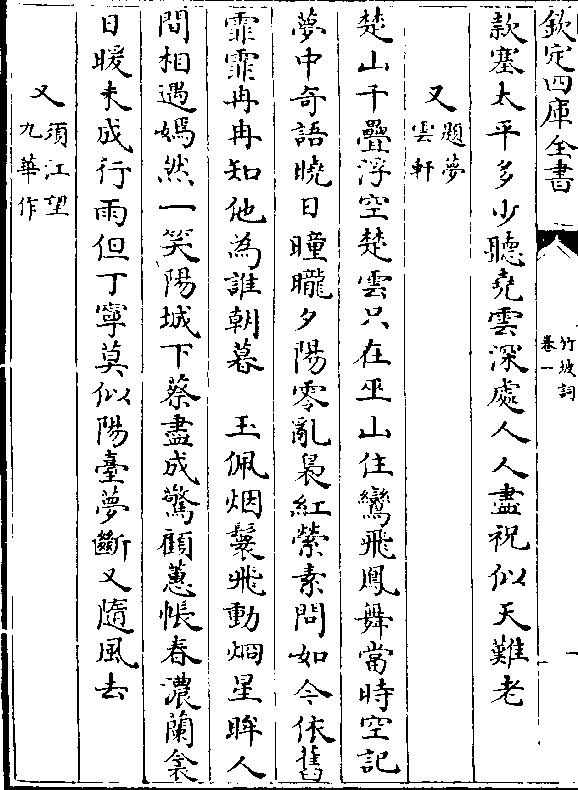 欽定四庫全書
竹坡詞
卷一
款塞太平多少聽堯雲深處人人盡祝似天難老
又題夢
雲軒
楚山千疊浮空楚雲只在巫山住鸞飛鳳舞當時空記
夢中奇語曉日曈曨夕陽零亂裊紅縈素問如今依舊
霏霏冉冉知他為誰朝暮　玉佩烟鬟飛動炯星眸人
間相遇嫣然一笑陽城下蔡盡成驚顧蕙帳春濃蘭衾
日暖未成行雨但丁寧莫似陽臺夢斷又隨風去
又須江望
九華作